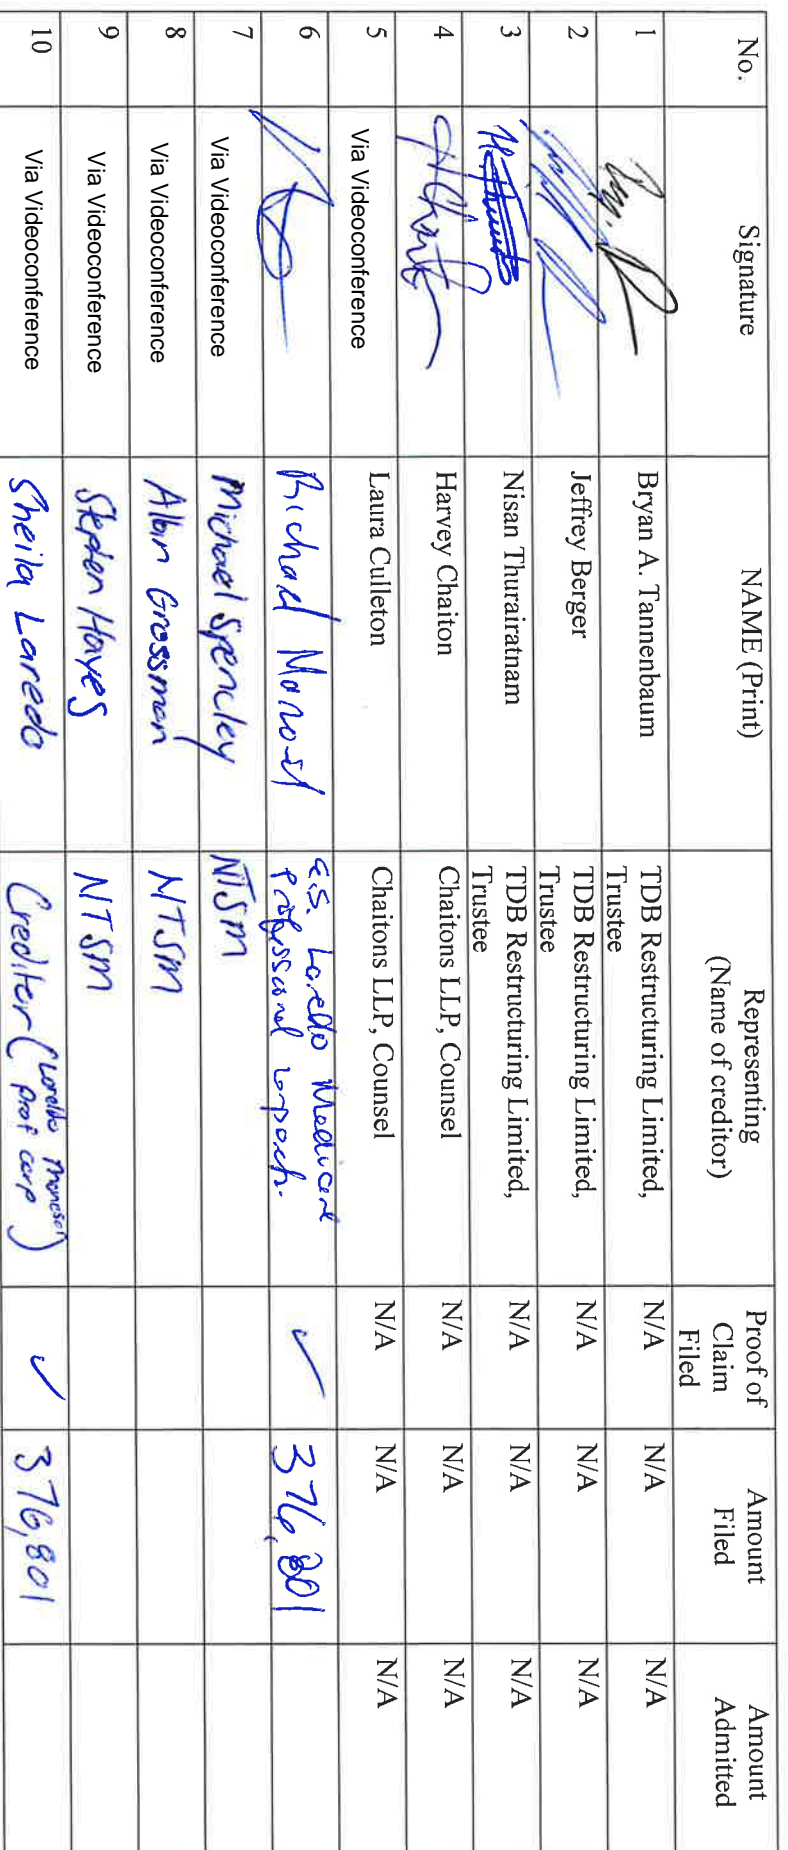 No. Signature NAME (Print) Representing (Name of creditor) Proof of Claim Filed Amount Filed Amount Admitted
1 Bryan A. Tannenbaum TDB Restructuring Limited, Trustee N/A N/A N/A
2 Jeffrey Berger TDB Restructuring Limited, Trustee N/A N/A N/A
3 Nisan Thurairatnam TDB Restructuring Limited, Trustee N/A N/A N/A
4 Harvey Chaiton Chaitons LLP, Counsel N/A N/A N/A
5 Via Videoconference Laura Culleton Chaitons LLP, Counsel N/A N/A N/A
6 Richard Laredo professional ✓ 376,801
7 Via Videoconference Michael Spencley NTSM
8 Via Videoconference Albin Grossman NTSM
9 Via Videoconference Stephen Hayes NTSM
10 Via Videoconference Sheila Laredo Creditor (Laredo prof corp) ✓ 376,801